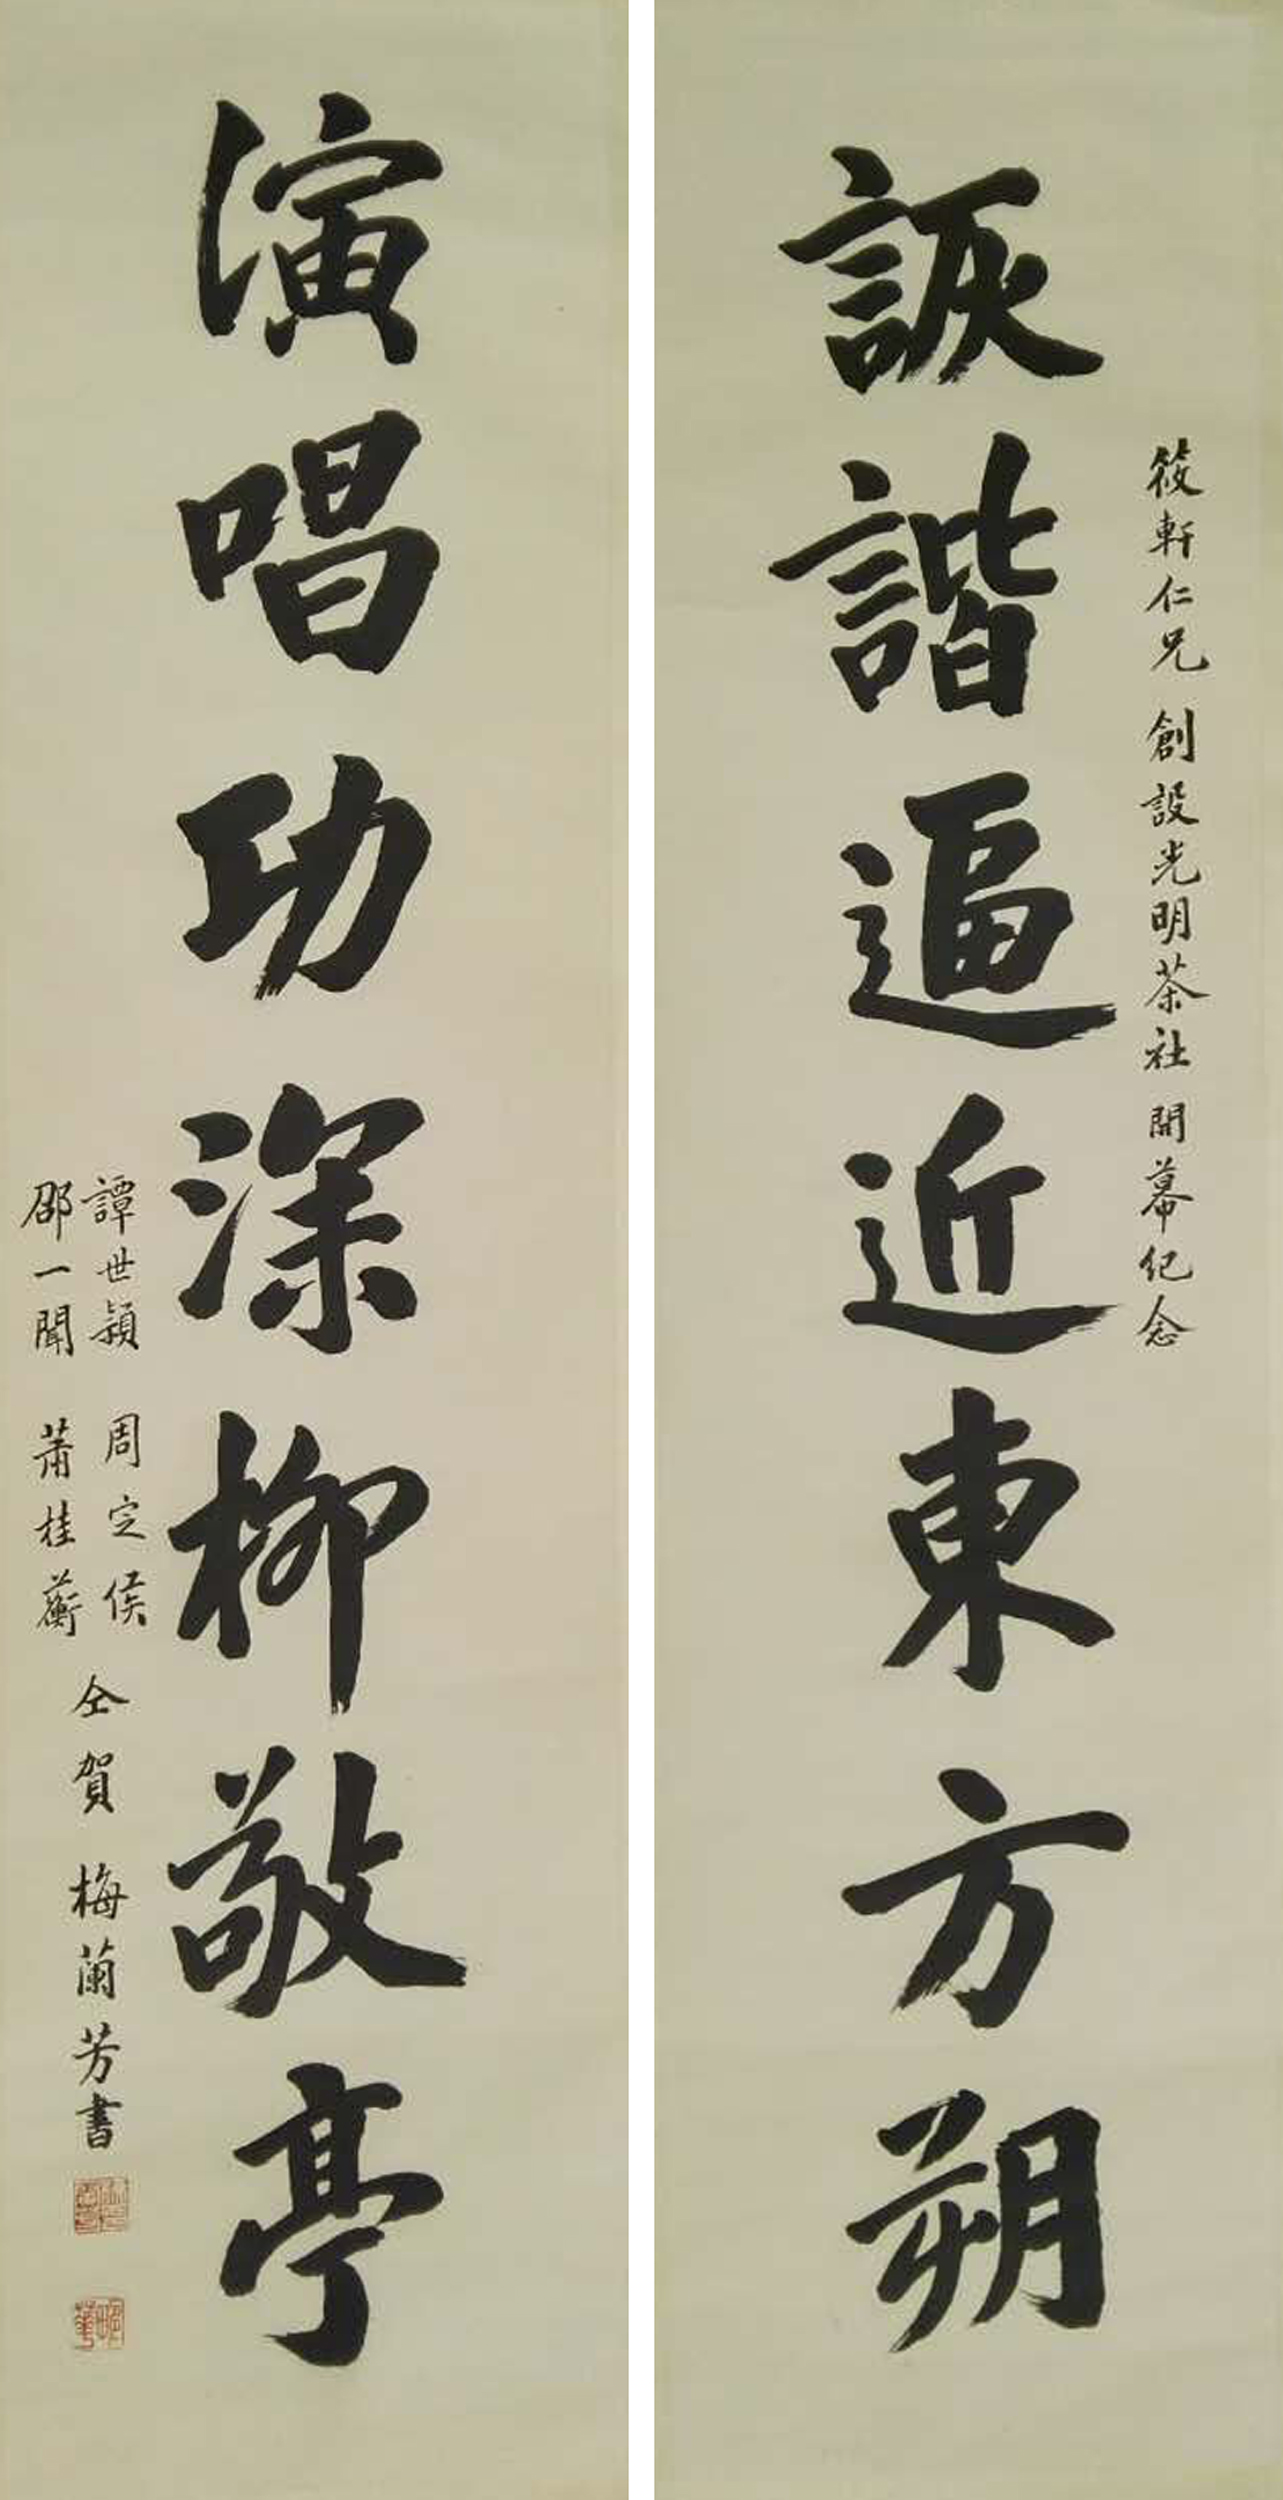 筱軒仁兄 創設光明茶社 開幕纪念
詼諧逼近東方朔
演唱功深柳敬亭
譚世頴 周定侯
邵一聞 蕭桂蘅
仝賀 梅蘭芳書